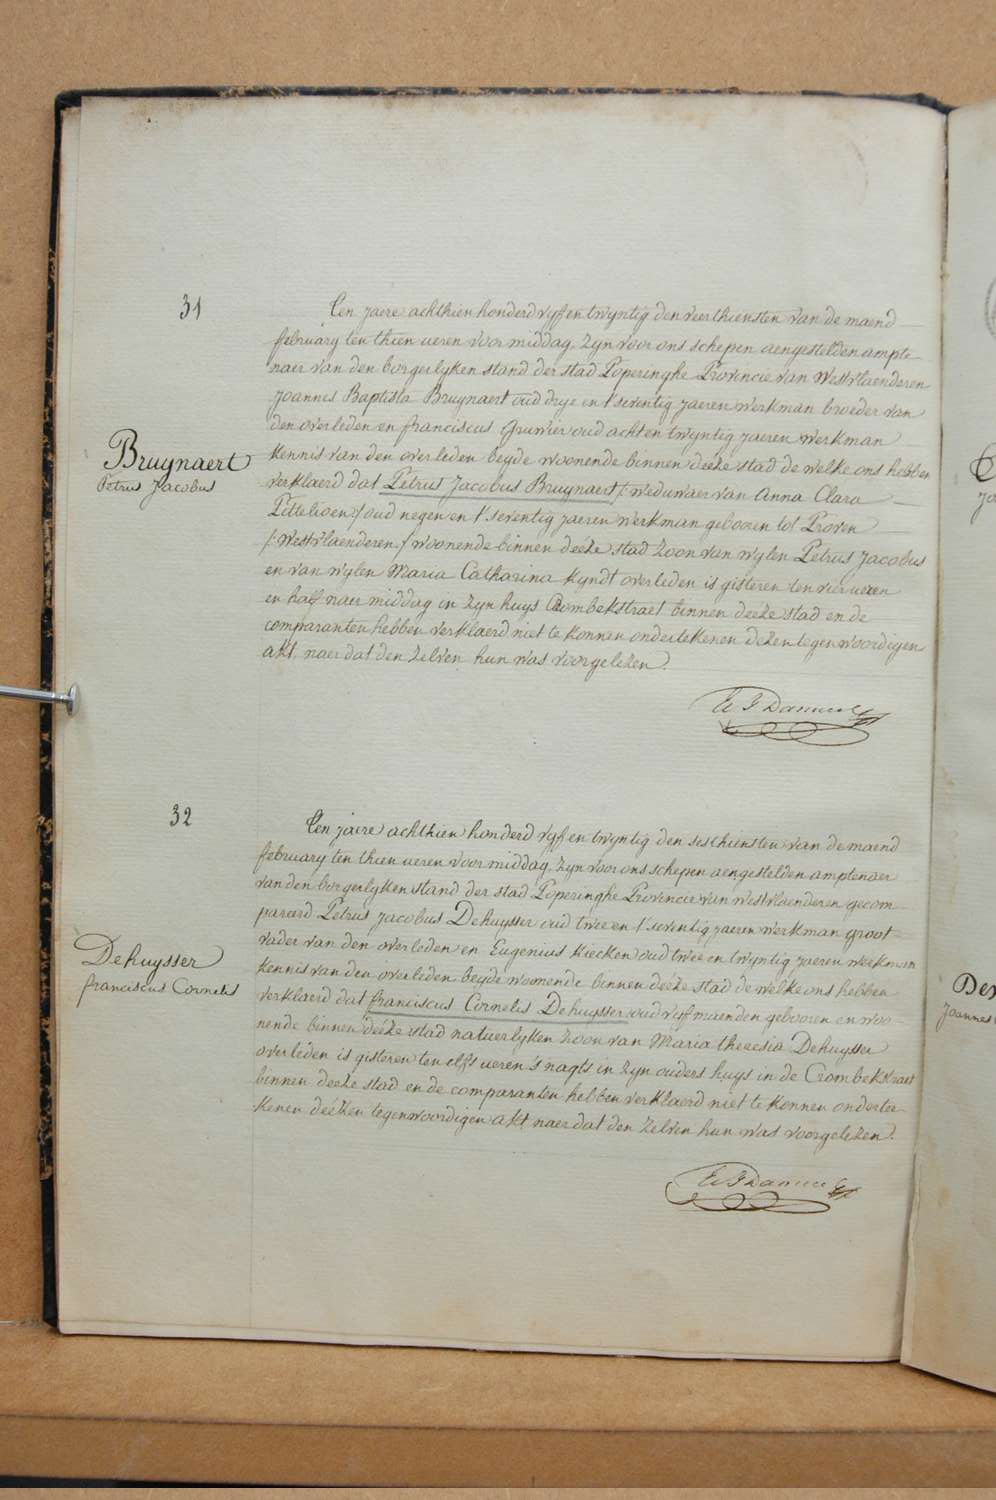 31
Bruynaert
Petrus Jacobus
Ten jaere achthien honderd vyf en twyntig den veerthiensten van de maend
february ten thien ueren voor middag, zyn voor ons schepen aengestelden ampte
naer van den borgerlyken stand der stad Poperinghe Provincie van Westvlaenderen
Joannes Baptista Bruynaert oud drye en t'seventig jaeren werkman broeder van
den overleden en franciscus Gruwier oud acht en twyntig jaeren werkman
kennis van den overleden beyde woonende binnen deeze stad de welke ons hebben
verklaerd dat Petrus Jacobus Bruynaert /: weduwaer van Anna Clara
:/ oud negen en t'seventig jaeren werkman gebooren tot Proven
/: Westvlaenderen :/ woonende binnen deeze stad zoon van wylen Petrus Jacobus
en van wylen Maria Catharina Kyndt overleden is gisteren ten vier ueren
en half naer middag in zyn huys Crombekstraet binnen deeze stad en de
comparanten hebben verklaerd niet te konnen onderteekenen dezen tegenwoordigen
akt, naer dat den zelven hun was voorgelezen.
32
Dehuysser
franciscus Cornelis
Ten jaere achthien honderd vyf en twyntig den sesthiensten van de maend
february ten thien ueren voor middag, zyn voor ons schepen aengestelden amptenaer
van den borgerlyken stand der stad Poperinghe Provincie van Westvlaenderen gecom
pareerd Petrus Jacobus Dehuysser oud twee en t'seventig jaeren werkman groot
vader van den overleden en Eugenius Kiecken oud twee en twyntig jaeren werkman
kennis van den overleden beyde woonende binnen deeze stad de welke ons hebben
verklaerd dat franciscus Cornelis Dehuysser oud vyf maenden gebooren en woo
nende binnen deeze stad natuerlyken zoon van Maria theresia Dehuysser
overleden is gisteren ten elf ueren 's nagts in zyn ouders huys in de Crombekstraet
binnen deeze stad en de comparanten hebben verklaerd niet te konnen ondertee
kenen deezen tegenwoordigen akt naer dat den zelven hun was voorgelezen.